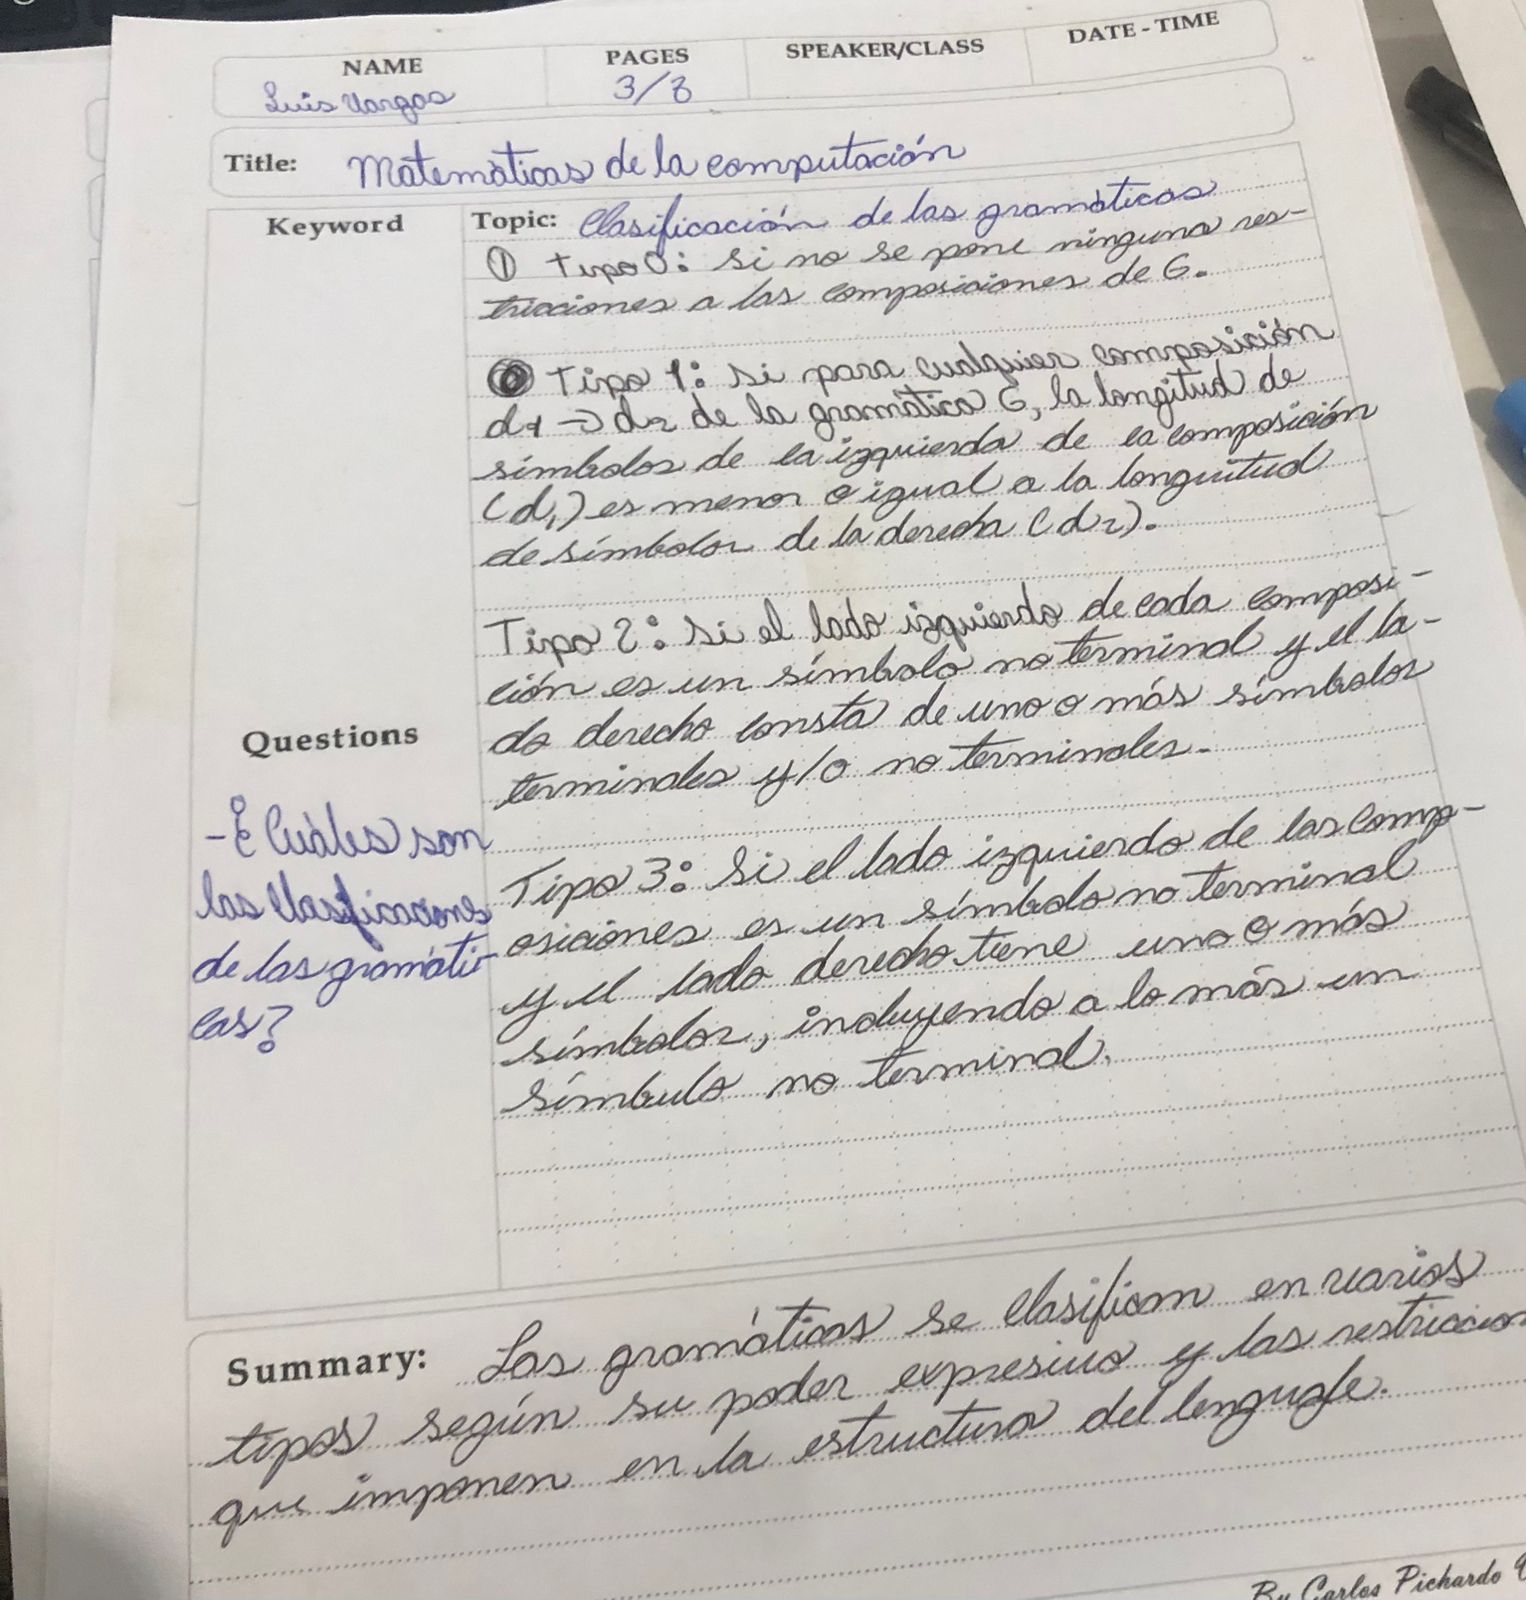 NAME
PAGES
SPEAKER/CLASS
DATE - TIME
Luis Vargas
3/3
Title: Matemáticas de la computación
Keyword
Topic: Clasificación de las gramáticas
① Tipo 0: si no se pone ninguna res-
tricciones a las composiciones de G.
Tipo 1: si para cualquier composición
d1 → d2 de la gramática G, la longitud de
símbolos de la izquierda de la composición
(d1) es menor o igual a la longuitud
de símbolos de la derecha (d2).
Tipo 2: si el lado izquierdo de cada composi-
ción es un símbolo no terminal y el la-
do derecho consta de uno o más símbolos
terminales y/o no terminales.
Tipo 3: Si el lado izquierdo de las comp-
osiciones es un símbolo no terminal
y el lado derecho tiene uno o más
símbolos, incluyendo a lo más un
símbulo no terminal.
Questions
- ¿Cuáles son
las clasificaciones
de las gramáti-
cas?
Summary: Las gramáticas se clasifican en varios
tipos según su poder expresivo y las restriccion
que imponen en la estructura del lenguaje.
By Carlos Pichardo